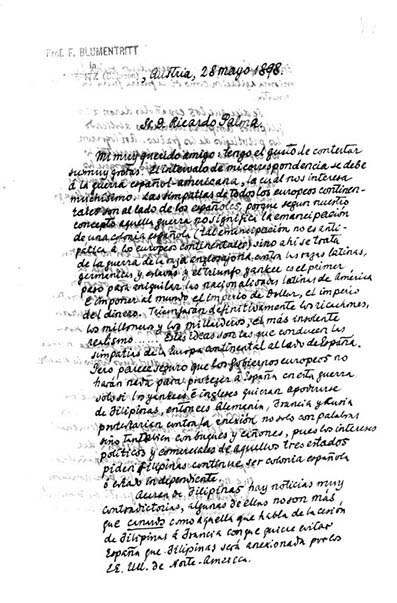 Prof. F. BLUMENTRITT
, Austria, 28 mayo 1898.
S. D. Ricardo Palma.
Mi muy querido amigo, tengo el gusto de contestar
su muy grata. El intervalo de mi correspondencia se debe
á la guerra español-americana, la cual nos interesa
muchísimo. Las simpatías de todos los europeos continen-
tales son al lado de los españoles, porque segun nuestro
concepto aquella guerra no significa la emancipación
de una colonia española (tal emancipación no es anti-
pática á los europeos continentales) sino ahí se trata
de la guerra de la raza anglosajona contra las razas latinas,
germánica, y eslava y el triunfo yankee es el primer
paso para aniquilar las nacionalidades latinas de América
é imponer al mundo el imperio de Dollar, el imperio
del dinero. Triunfarán definitivamente los ricachones,
los millones y los milliarderos, el más insolente
realismo ..... Estas ideas son las que conducen las
simpatías de la Europa continental al lado de España.
Pero parece seguro que los gobiernos europeos no
harán nada para proteger á España en esta guerra
sólo si los yankees é ingleses quieran apoderarse
de Filipinas, entonces Alemania, Francia y Rusia
protestarían contra la anexión no solo con palabras
sino también con buques y cañones, pues los intereses
políticos y comerciales de aquellos tres estados
piden Filipinas continue ser colonia española
ó estado independiente.
Acerca de Filipinas hay noticias muy
contradictorias, algunas de ellas no son más
que canards como aquella que habla de la cesión
de Filipinas á Francia con que quiere evitar
España que Filipinas será anexionada por los
EE. UU. de Norte-América.